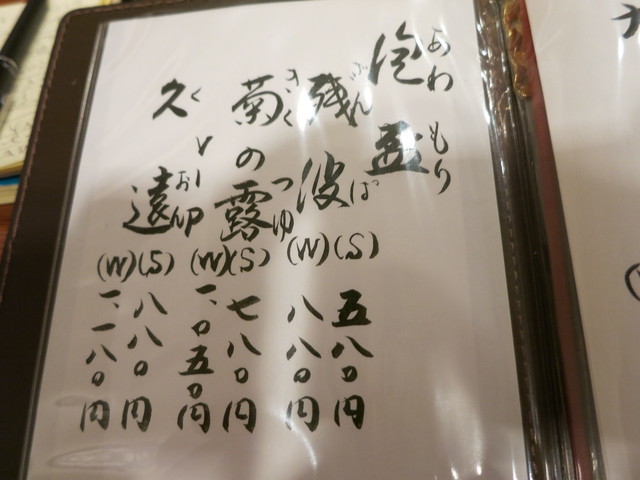 あわもり
泡盛
ざんぱ
残波
(S) 五八〇円
(W) 八八〇円
きくつゆ
菊の露
(S) 七八〇円
(W) 一、〇五〇円
久遠
(S) 八八〇円
(W) 一、一八〇円